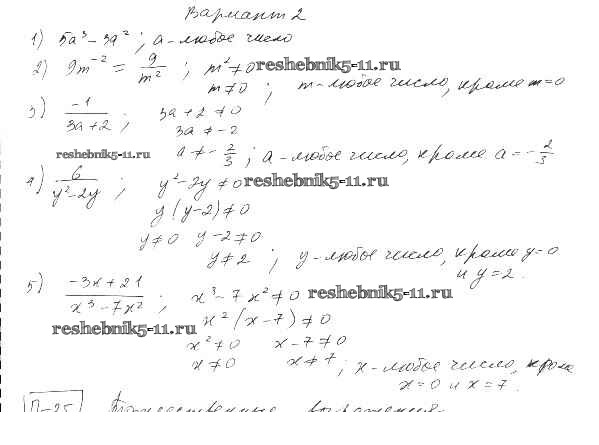 Вариант 2
1) 5a³ - 3a² ; a - любое число
2) 9m⁻² = 9/m² ; m² ≠ 0 reshebnik5-11.ru
m ≠ 0 ; m - любое число, кроме m = 0
3) -1/(3a+2) ; 3a + 2 ≠ 0
3a ≠ -2
reshebnik5-11.ru a ≠ -2/3 ; a - любое число, кроме a = -2/3
4) 6/(y²-2y) ; y² - 2y ≠ 0 reshebnik5-11.ru
y (y-2) ≠ 0
y ≠ 0 y - 2 ≠ 0
y ≠ 2 ; y - любое число, кроме y = 0
и y = 2.
5) (-3x + 21)/(x³ - 7x²) ; x³ - 7x² ≠ 0 reshebnik5-11.ru
reshebnik5-11.ru x² (x - 7) ≠ 0
x² ≠ 0 x - 7 ≠ 0
x ≠ 0 x ≠ 7 ; x - любое число, кроме
x = 0 и x = 7.
П-25 выражения.